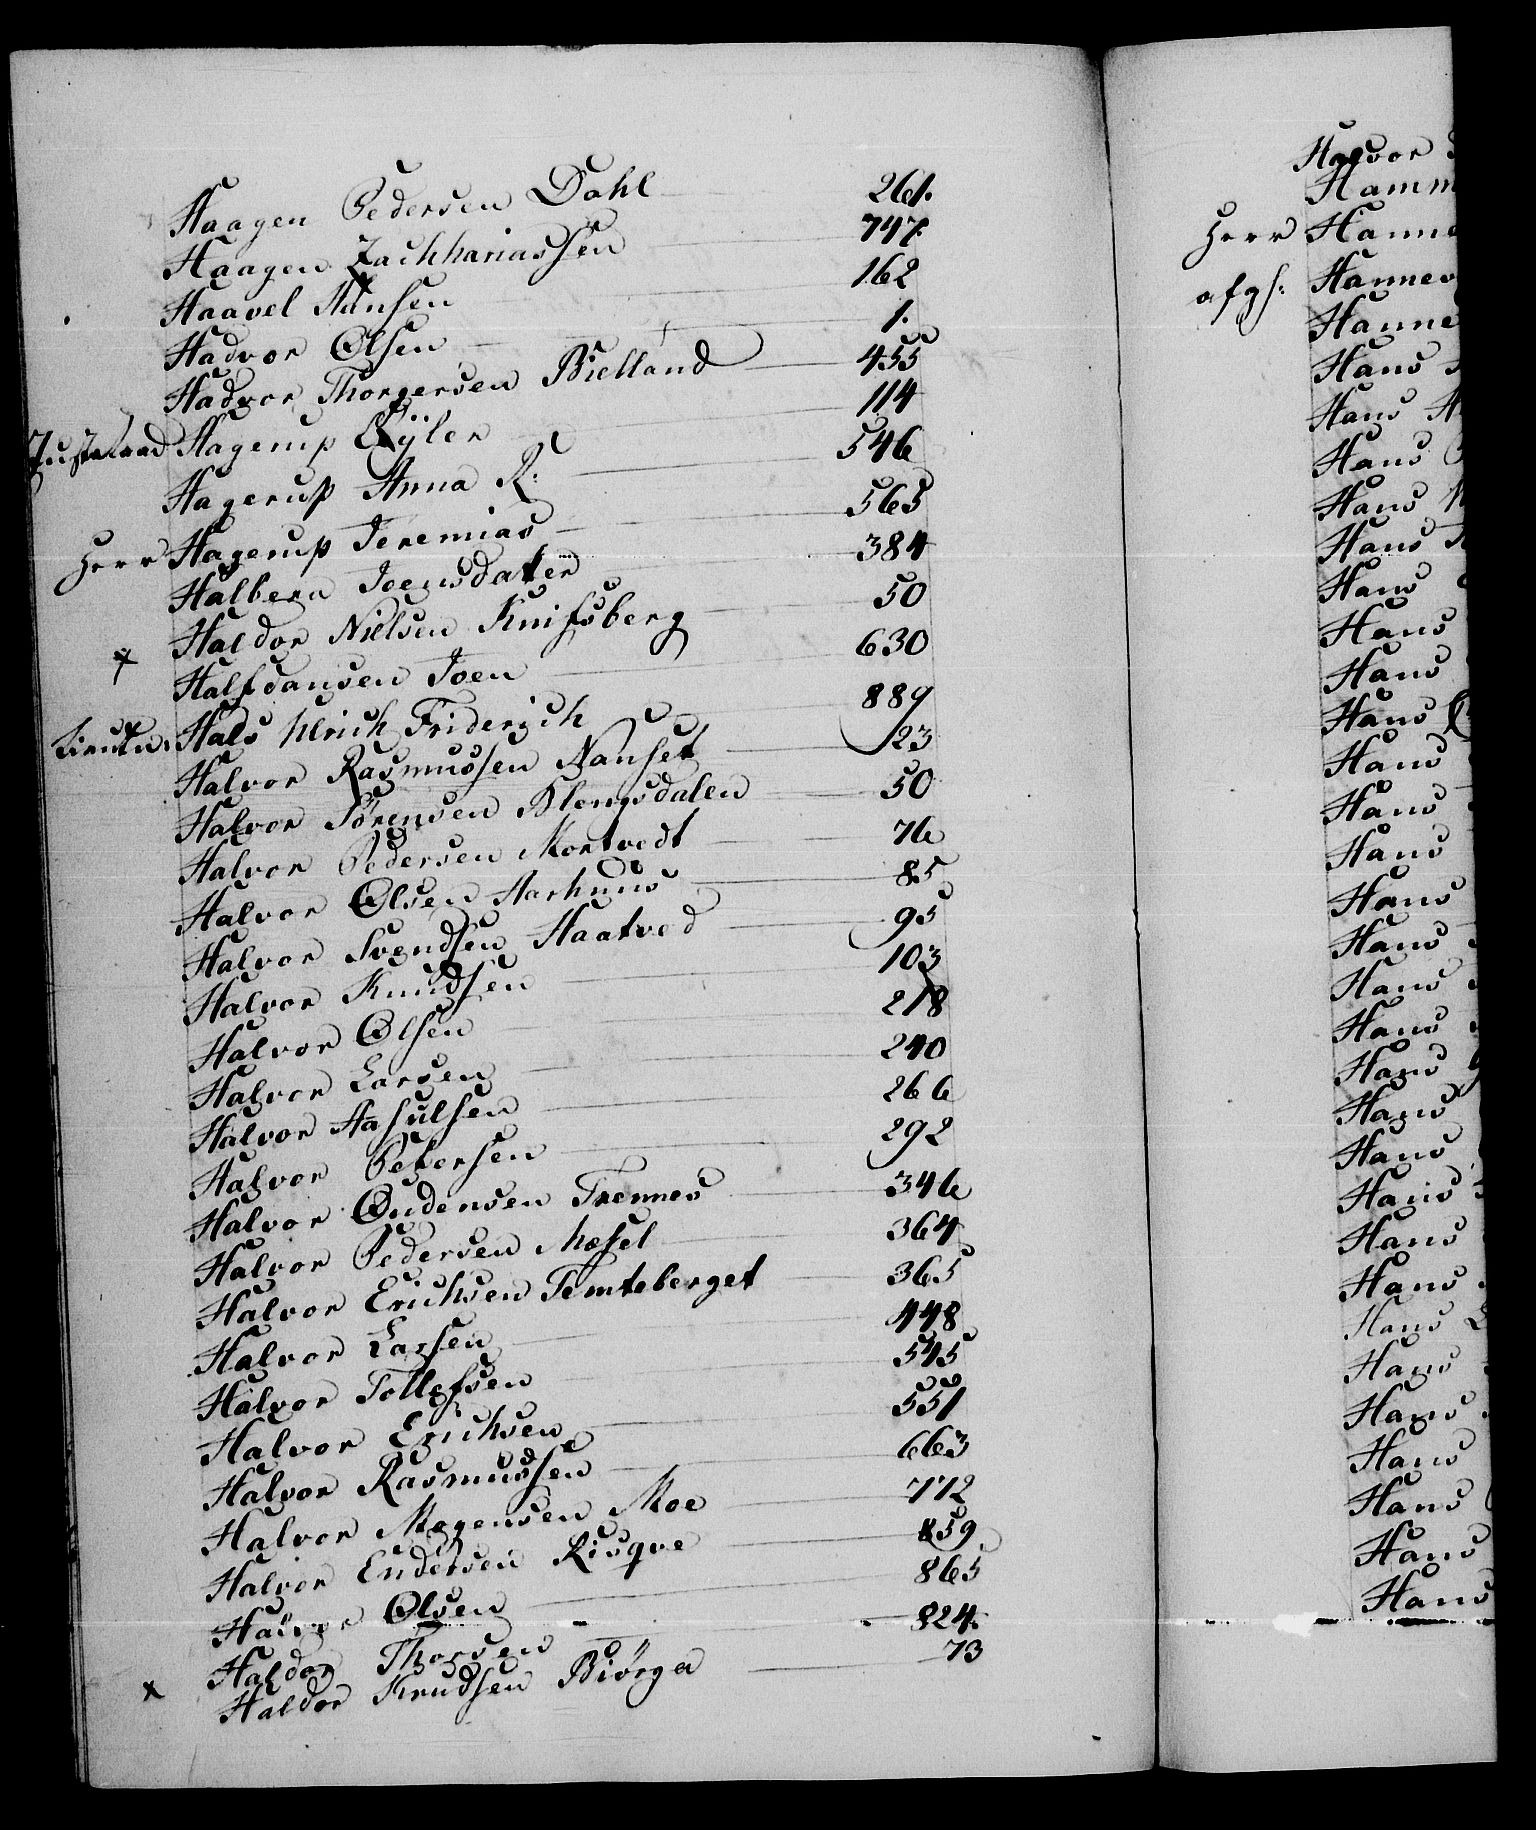 Haagen Pedersen Dahl 261.
Haagen Zachhariassen 747
Haavel Hansen 162
Hadvor Olsen 1.
Hadvor Thorgersen Bielland 455
Justsraad Hagerup Eyler 114
Hagerup Anna R: 546
Herr Hagerup Jeremias 565
Halbera Joensdater 384
Haldor Nielsen Knifsberg 50
x Halfdansen Joen 630
Lieutn: Hals Ulrich Friderich 889
Halvor Rasmussen Nanset 23
Halvor Sørensen Klengsdalen 50
Halvor Pedersen Mortvedt 76
Halvor Olsen Aarhuus 85
Halvor Svendsen Haatved 95
Halvor Knudsen 103
Halvor Olsen 218
Halvor Larsen 240
Halvor Aasulsen 266
Halvor Petersen 292
Halvor Oudensen Trennes 346
Halvor Pedersen Mæsel 364
Halvor Erichsen Temteberget 365
Halvor Larsen 448
Halvor Tollefsen 545
Halvor Erichsen 551
Halvor Rasmussen 663
Halvor Mogensen Moe 772
Halvor Endersen Risqve 859
Halvor Olsen 865
Haldor Thorsen 824.
x Haldor Knudsen Biörga 73
Halvor
Hamm
Herr Hanne
afgs: Hannev
Hanne
Hans
Hans
Hans
Hans
Hans
Hans
Hans
Hans
Hans
Hans
Hans
Hans
Hans
Hans
Hans
Hans
Hans
Hans
Hans
Hans
Hans
Hans
Hans
Hans
Hans
Hans
Hans
Hans
Hans